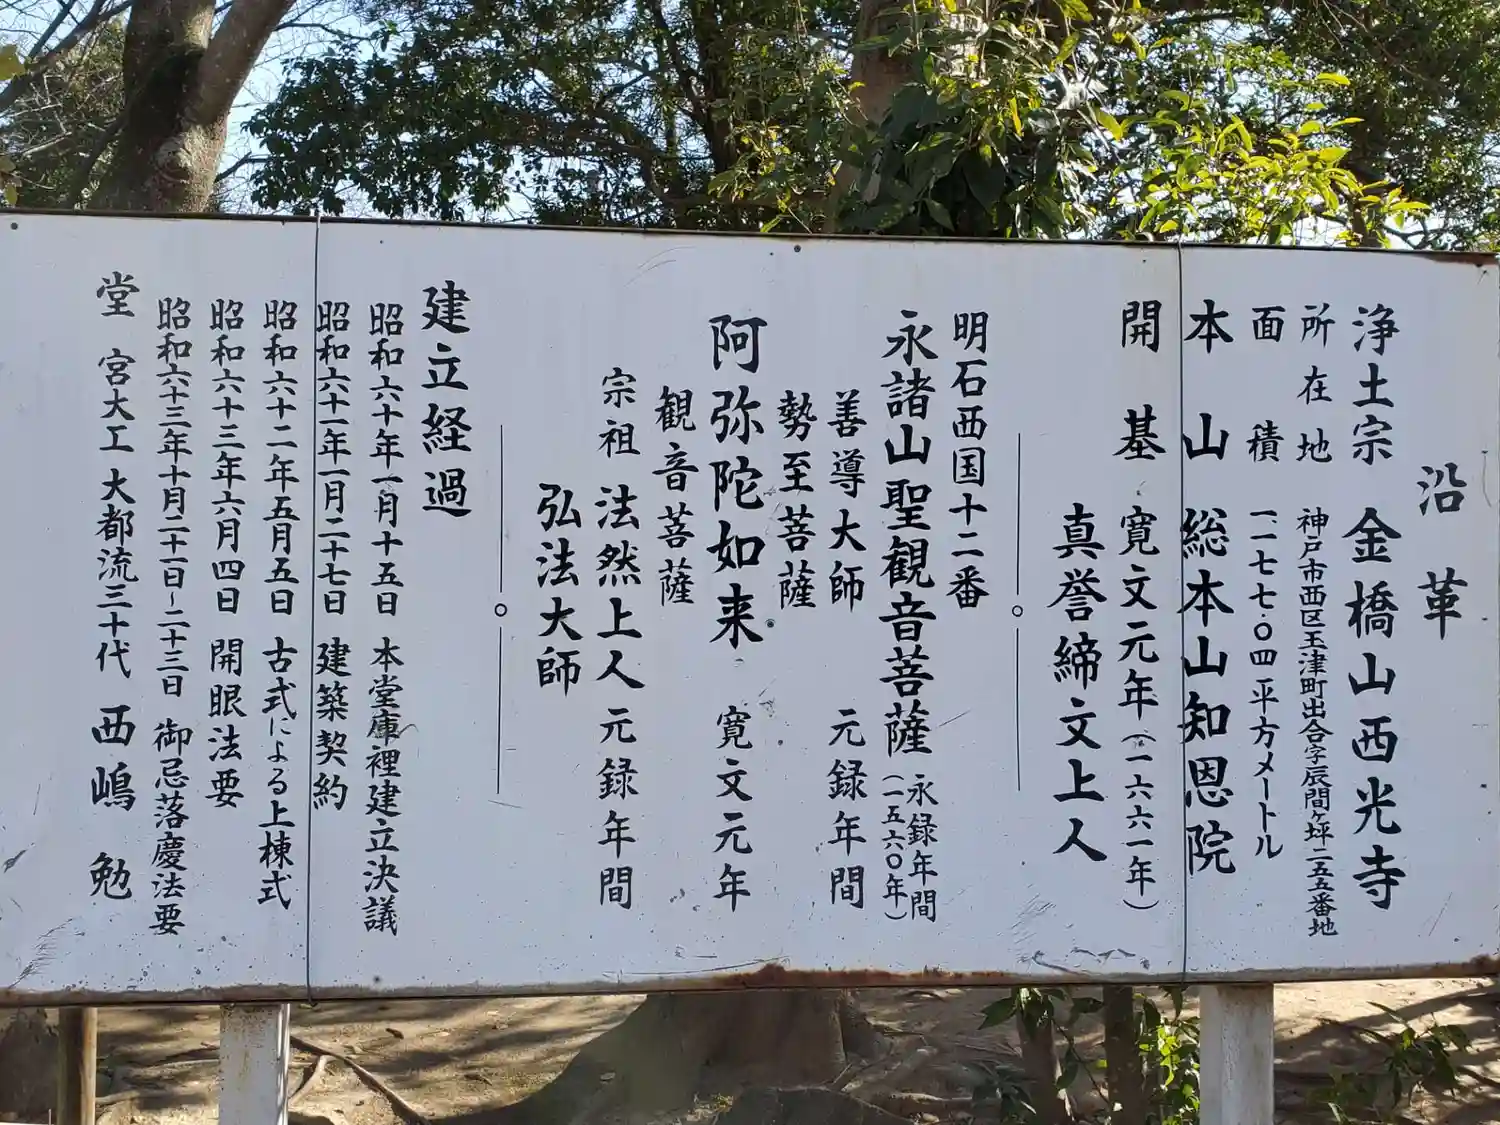 沿革
浄土宗 金橋山西光寺
所在地 神戸市西区玉津町出合字辰間ヶ坪二五五番地
面積 一一七七・〇四平方メートル
本山 総本山知恩院
開基 寛文元年(一六六一年)
真誉締文上人
明石西国十二番
永諸山聖観音菩薩 永録年間(一五六〇年)
善導大師 元録年間
勢至菩薩
阿弥陀如来 寛文元年
観音菩薩
宗祖 法然上人 元録年間
弘法大師
建立経過
昭和六十年一月十五日 本堂庫裡建立決議
昭和六十一年一月二十七日 建築契約
昭和六十二年五月五日 古式による上棟式
昭和六十三年六月四日 開眼法要
昭和六十三年十月二十一日~二十三日 御忌落慶法要
堂宮大工 大都流三十代 西嶋 勉